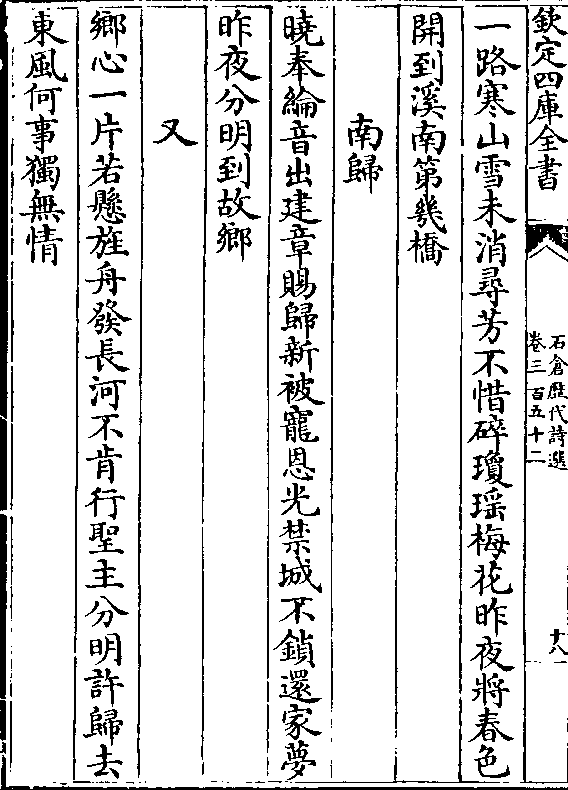 欽定四庫全書
石倉歴代詩選
卷三百五十二
十八
一路寒山雪未消尋芳不惜碎瓊瑶梅花昨夜將春色
開到溪南第幾橋
南歸
曉奉綸音出建章賜歸新被寵恩光禁城不鎖還家夢
昨夜分明到故鄉
又
鄉心一片若懸旌舟發長河不肯行聖主分明許歸去
東風何事獨無情